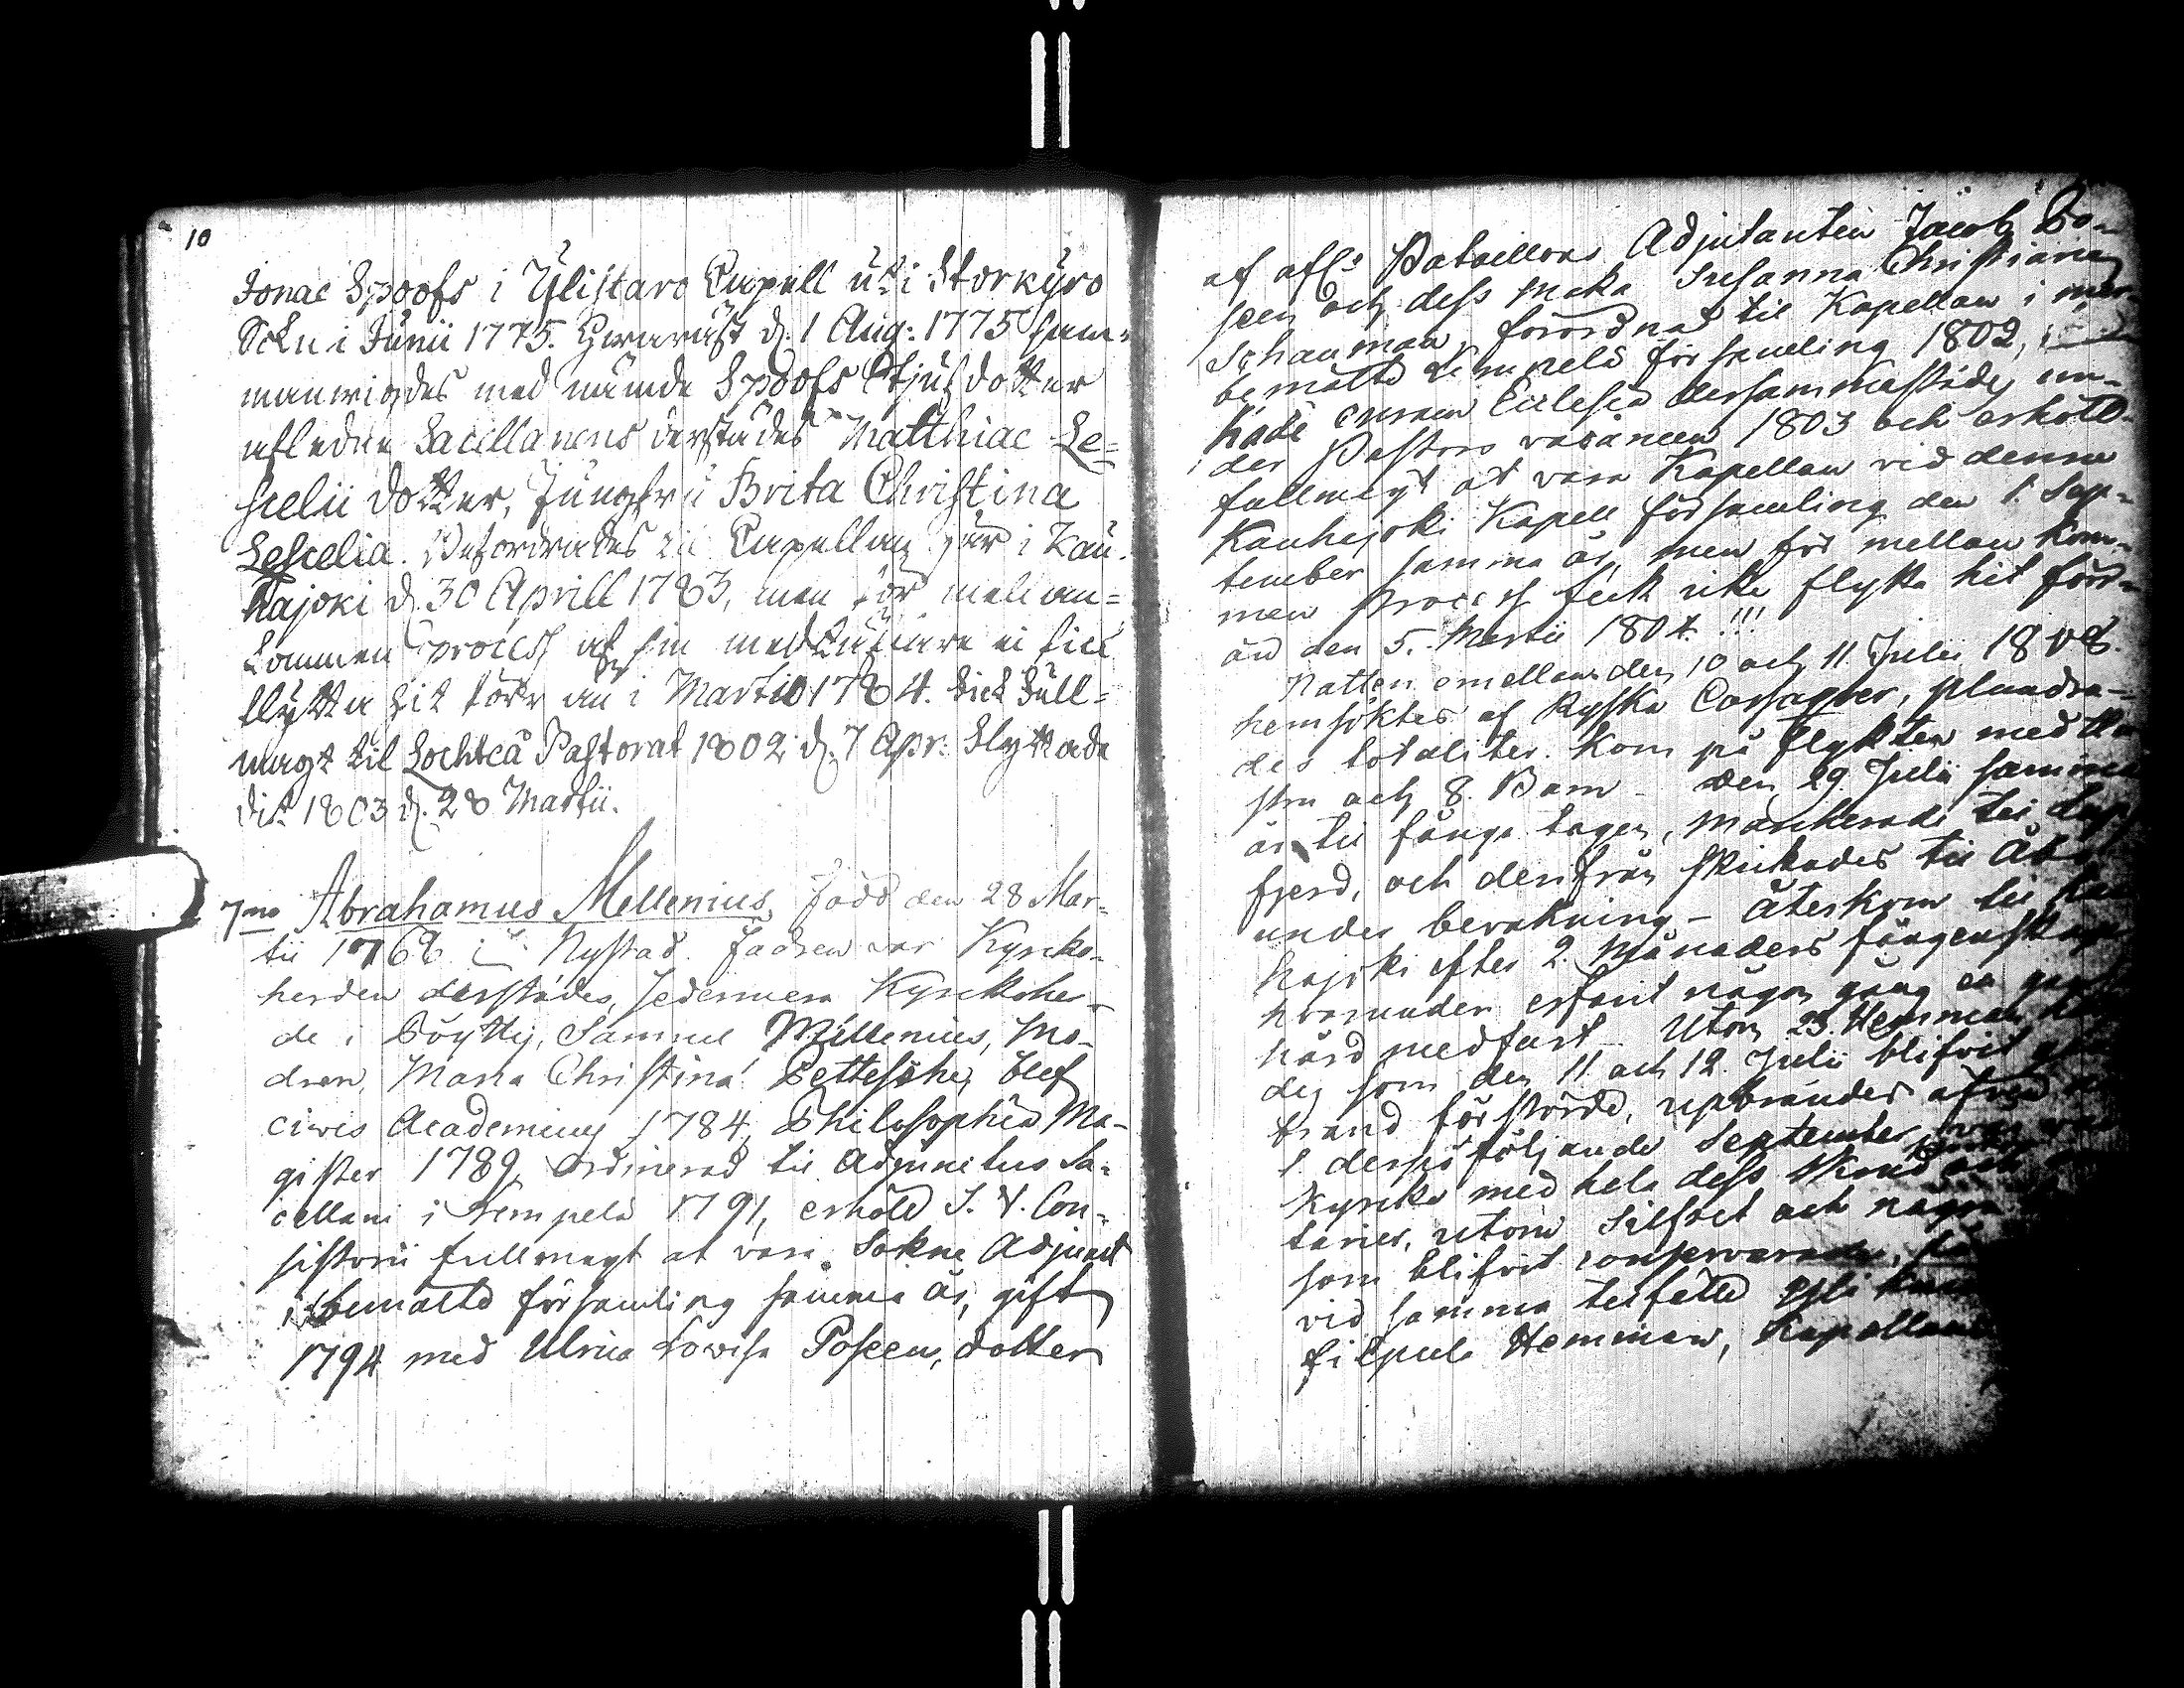 10
Jonae Spoofs i Ylistaro Capell uti Storkyro
Sokn i Junii 1775. Hwaräst d. 1 Aug: 1775 sam=
manwigdes med nämde Spoofs Stjufdotter
afledne Sacellanens derstädes Matthiae Le=
scelii dotter, Jungfru Brita Christina
Lescelia. Befordrades til Capellan här i Kau=
hajoki d. 30 Aprill 1783, men för mellan=
kommen process af sin medsökare ei fick
flytta hit förr än i Martio 1784. Fick Full=
magt til Lochteå Pastorat 1802 d. 7 Apr: flyttade
dit 1803 d. 28 Martii.
7mo Abrahamus Mellenius, född den 28 Mar-
tii 1768 i Nystad. Fadren var Kyrko-
herden derstädes, sedermera Kyrkoher-
de i Pöyttij, Samuel Mellenius, Mo-
dren, Maria Christina Pettesche, blef
civis Academicus 1784, Philosophiæ Ma-
gister 1789, Ordinerad til Adjunctus Sa-
cellani i Kempele 1791, erhöld S. V. Con-
sistorii fullmagt at vara Sokne Adjunct
i bemälte församling samma år, gift
1794 med Ulrica Lovisa Poseen, dotter
af afl. Bataillons Adjutanten Jacob Po-
seen och dess Maka Susanna Christiana
Schauman, förordnad til Kapellan i
bemälte Kempele församling 1802,
hade curam Ecclesiæ dersammastädes un-
der Pastors vacancen 1803 och erhöll
fullmagt at vara Kapellan vid denna
Kauhajoki Kapell församling den 1. Sep-
tember samma år, men för mellan kom-
men Process fick icke flytta hit förr
än den 5. Martii 1804.!!!
Natten emellan den 10 och 11 Julii 1808.
hemsöktes af Ryska Cossaquer, plundra-
des totaliter. Kom på flykten med
stru och 8. Barn - den 29. Julii samma
år til fånga tagen, marcherade til Lap-
fjerd, och derifrån skickades til Åbo
under bevakning - Återkom til Kau
hajoki efter 2. Månaders fångenskap
hvarunder erfarit någon gång en
hård medfart - Utom 23. Hemman
des som den 11 och 12. Julii blifvit
brand förstörde, upbrändes äfven
1 derpå följande September
Kyrcka med hela dess skrud och
tarier, utom Silfret och några
som blifvit conserverade,
vid samma tilfälle
filpula Hemman, Kapellans